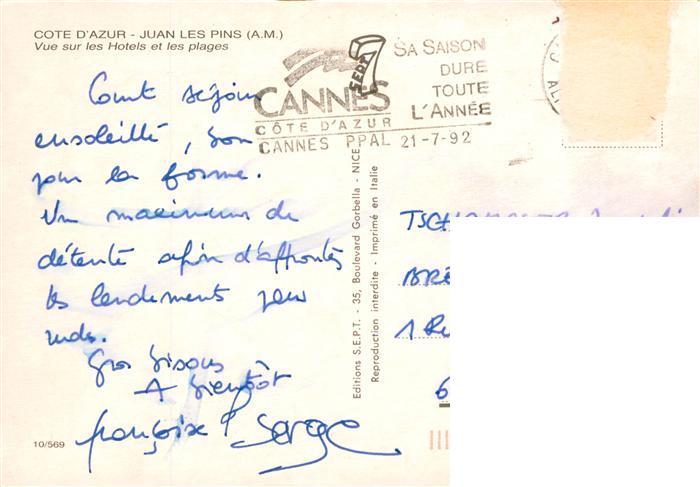 COTE D'AZUR - JUAN LES PINS (A.M.)
Vue sur les Hotels et les plages
Court séjour
ensoleillé, bon
pour la forme.
Un maximum de
détente afin d'affronter
les lendemains
Gros bisous
A bientôt
Françoise Serge
10/569
7
SEPT
CANNES
CÔTE D'AZUR
CANNES PPAL 21-7-92
SA SAISON
DURE
TOUTE
L'ANNÉE
Editions S.E.P.T. - 35, Boulevard Gorbella - NICE
Reproduction interdite - Imprimé en Italie
1
6